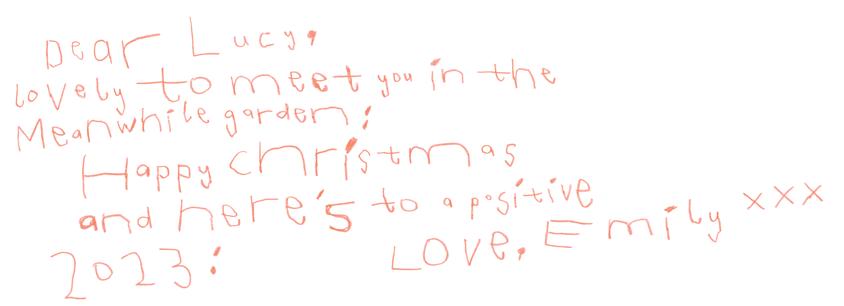 Dear Lucy,
lovely to meet you in the
Meanwhile garden!
Happy christmas
and here's to a positive
2023! Love, Emily xxx